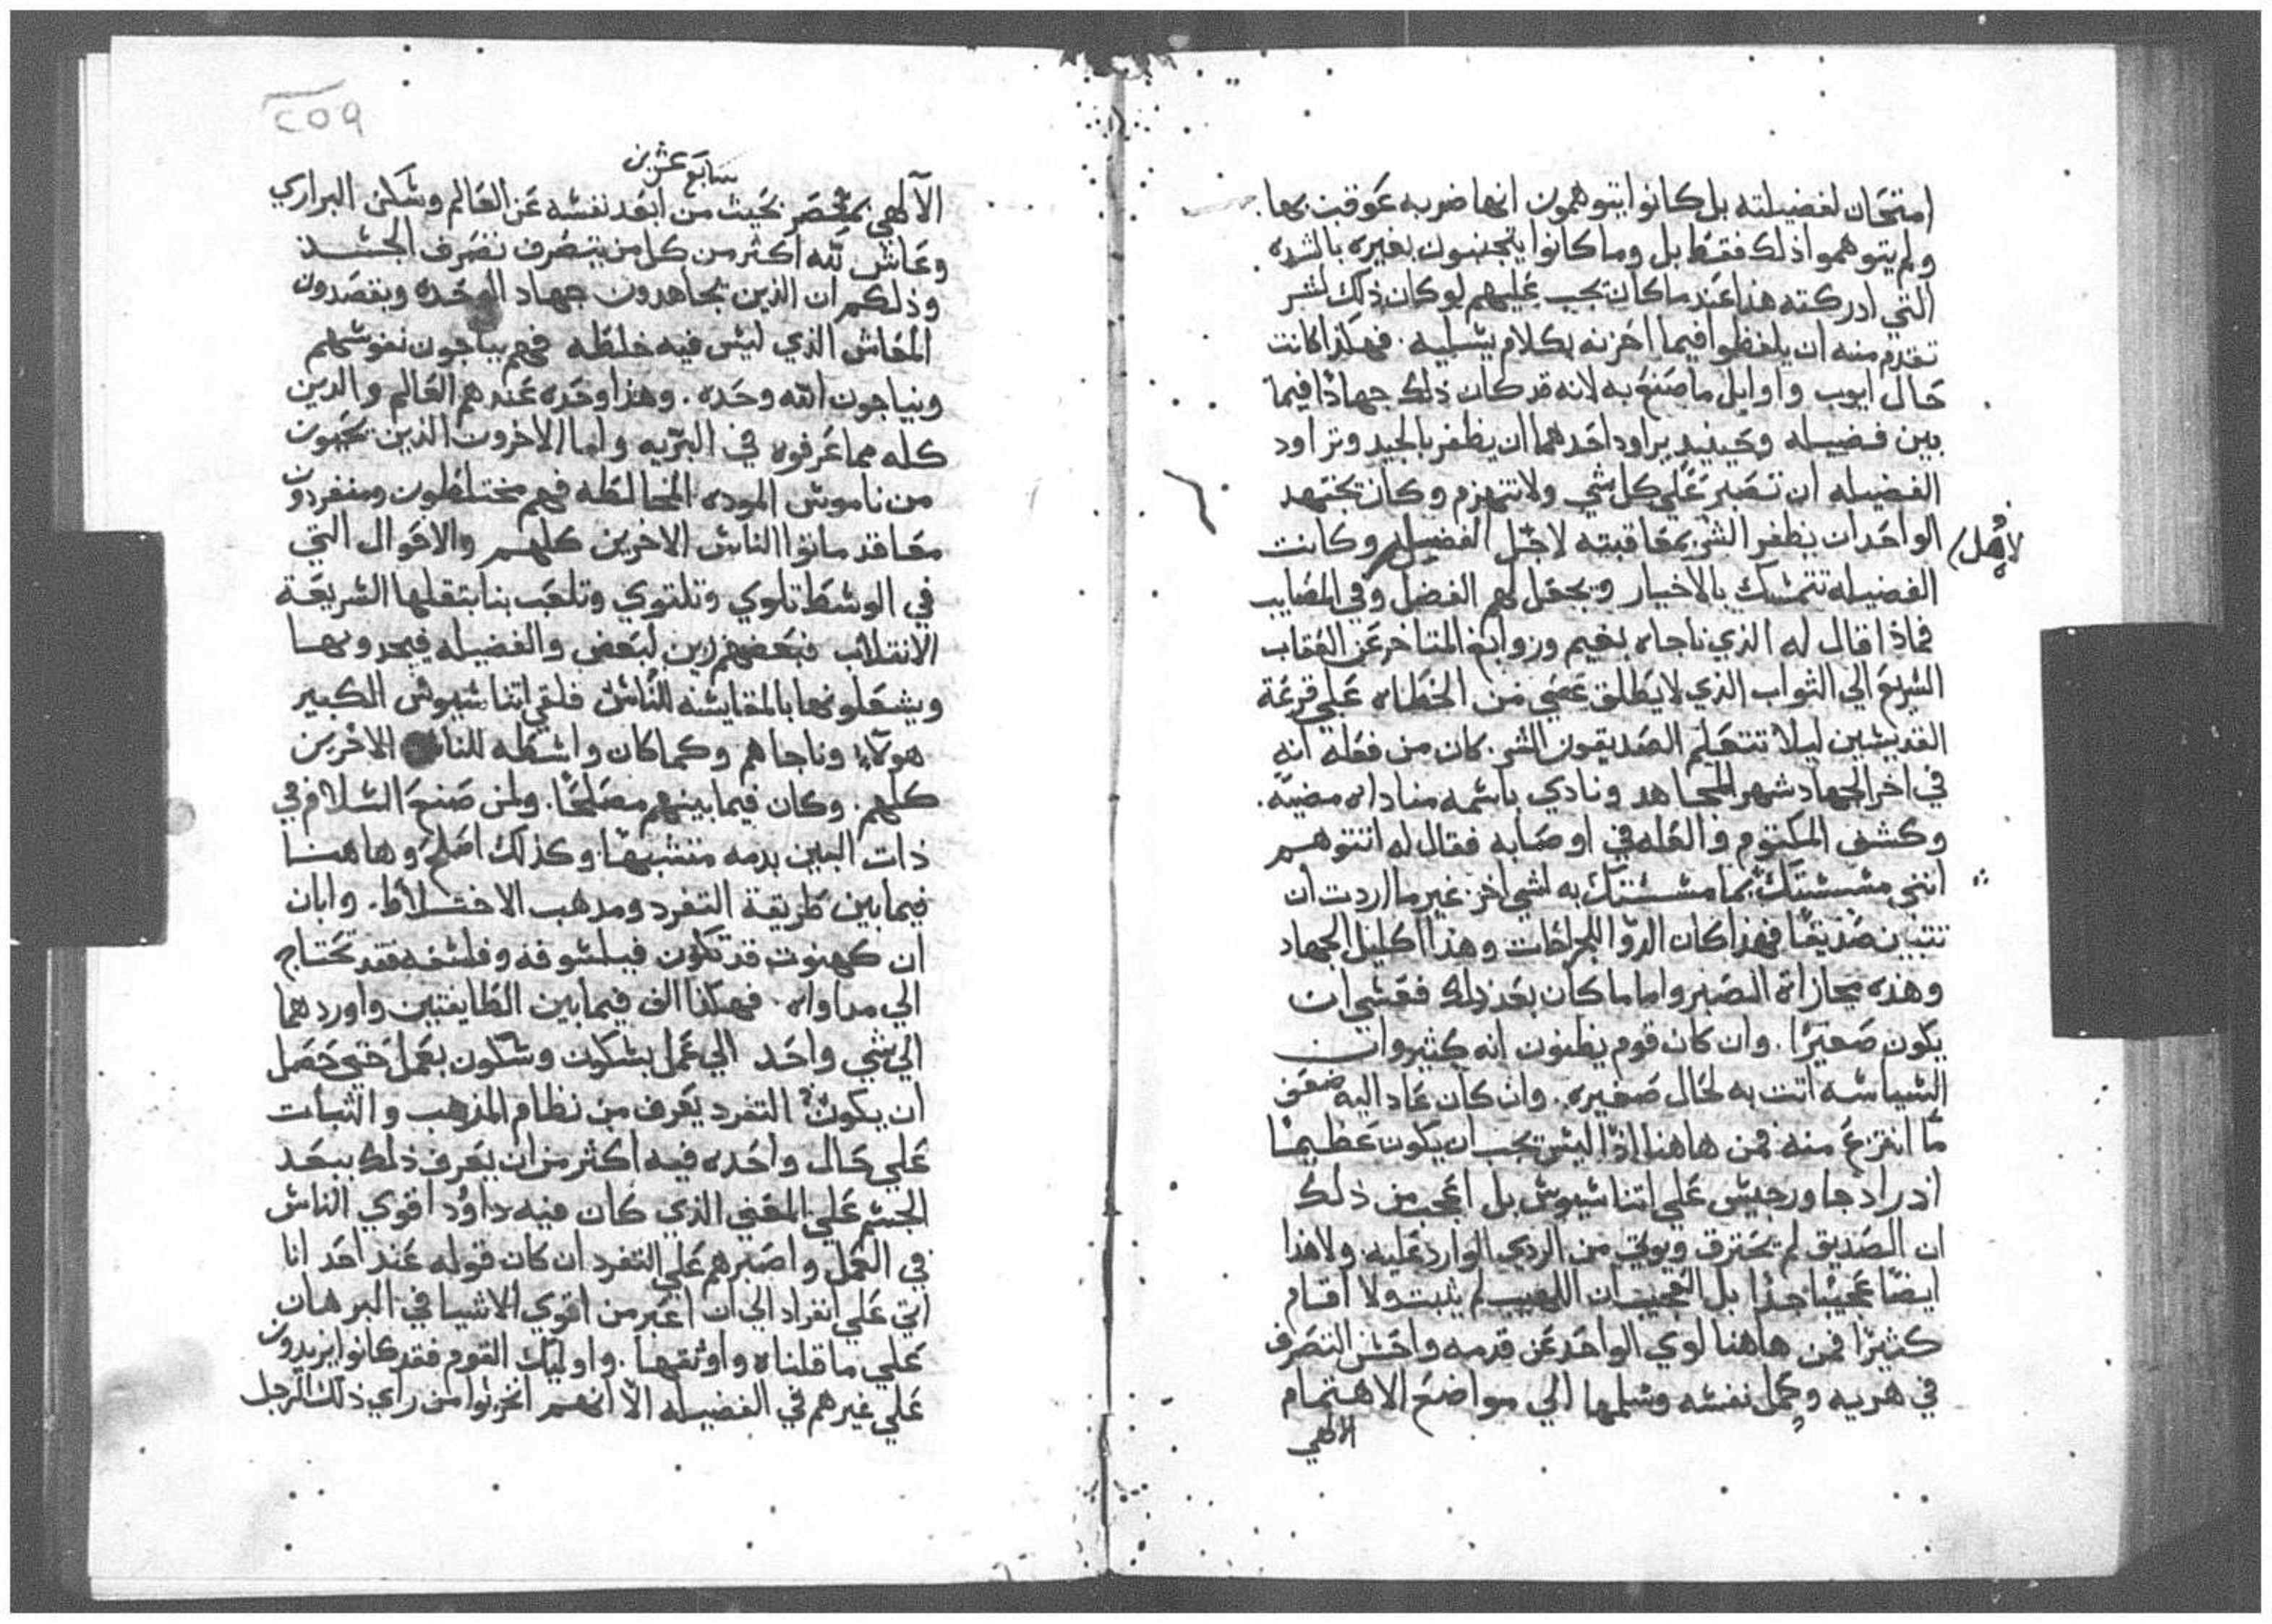 امتحان لفضيلته بل كانوا يتوهمون انها ضربه عوقب بها.
ولم يتوهموا ذلك فقط بل وما كانوا يتجنبون بغيره بالشده
التي ادركته هذا عند ما كان تجب عليهم لو كان ذلك لشر
تقدم منه ان يلحظوا فيما احزنه بكلام يسليه. فهكذا كانت
حال ايوب واوايل ما صنع به لانه قد كان ذلك جهادًا فيما
بين فضيله وحينيد يراود احدهما ان يظفر بالجيد وتراود
الفضيله ان تصبر علي كل شي ولا تنهزم وكان يجتهد
الواحد ان يظفر الشر بمعاقبته لاجل الفضيله وكانت
لاهل
الفضيله تتمسك بالاخيار ويجعل لهم الفضل وفي المصايب
فماذا قال له الذي ناجاه بغيم وزوابع المتاخر عن العقاب
السريع الي الثواب الذي لا يطلق عصي من الخطاه علي قرعة
القديسين ليلا تتعلم الصديقون الشر. كان من فعله انه
في اخر الجهاد شهر المجاهد ونادي باسمه مناداه مضيه.
وكشف المكتوم والعله في اوصابه فقال له اتتوهم
انني مسستك بما مسستك به لشي اخر غير ما اردت ان
تتبين صديقًا فهذا كان الدوا للجراحات وهذا اكليل الجهاد
وهذه مجازاة الصبر واما ما كان بعد ذلك فعسي ان
يكون صغيرًا. وان كان قوم يظنون انه كثير وان
السياسه اتت به لحال صغيره. وان كان عاد اليه ضعف
ما انتزع منه فمن هاهنا اذًا ليس تجب ان يكون عظيمًا
اذ راد جاورجيس علي اتناسيوس بل اعجب من ذلك
ان الصديق لم يحترق ويوتي من الردي الوارد عليه ولا هذا
ايضًا عجيبًا جدًا بل العجيب ان اللهيب لم يثبت ولا اقام
كثيرًا فمن هاهنا لوي الواحد عن قدمه واحسن التصرف
في هربه وحمل نفسه وسلمها الي مواضع الاهتمام
الالهي
٢٥٩
سابع عشرين
الآلهي بمصر بحيث من ابعد نفسه عن العالم وسكن البراري
وعاش لله اكثر من كل من يتصرف تصرف الجسد
وذلكم ان الذين يجاهدون جهاد الوحده ويقصدون
المعاش الذي ليس فيه خلطه فهم يناجون نفوسهم
ويناجون الله وحده. وهذا وحده عندهم العالم والدين
كله مما عرفوه في البريه واما الاخرون الذين يحبون
من ناموس الموده المخالطه فهم مختلطون ومنفردون
معا قد ماتوا الناس الاخرين كلهم والاحوال التي
في الوسط تلوي وتلتوي وتلعب بنا بتقلبها السريعة
الانتقلاب فبعضهم زين لبعض والفضيله فيحدونها
ويشعلونها بالمقايسه للناس فلقي اتناسيوس الكبير
هولآء وناجاهم وكما كان واسطه للناس الاخرين
كلهم. وكان فيما بينهم مصلحًا. ولمن صنع السلام في
ذات البين بدمه متشبهًا وكذلك اصلح وهاهنا
فيما بين طريقة التفرد ومدهب الاختلاط. وابان
ان كهنوت قد تكون فيلسوفه وفلسفه فقد تحتاج
الي مداواه. فهكذا الف فيما بين الطايفتين واوردهما
الي شي واحد الي عمل بسكون وسكون بعمل حتي حصل
ان يكون التفرد يعرف من نظام المذهب والثبات
علي حال واحده فيه اكثر من ان يعرف ذلك ببعد
الجسم علي المعني الذي كان فيه داوُد اقوي الناس
في العمل واصبرهم علي التفرد ان كان قوله عند احد انا
اتي علي انفراد الي ان اعبر من اقوي الاشيا في البرهان
علي ما قلناه واوثقها. واوليك القوم فقد كانوا يزيدون
علي غيرهم في الفضيله الا انهم انحرفوا من راي ذلك الرجل